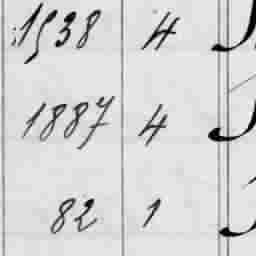 1538 4
1887 4
82 1